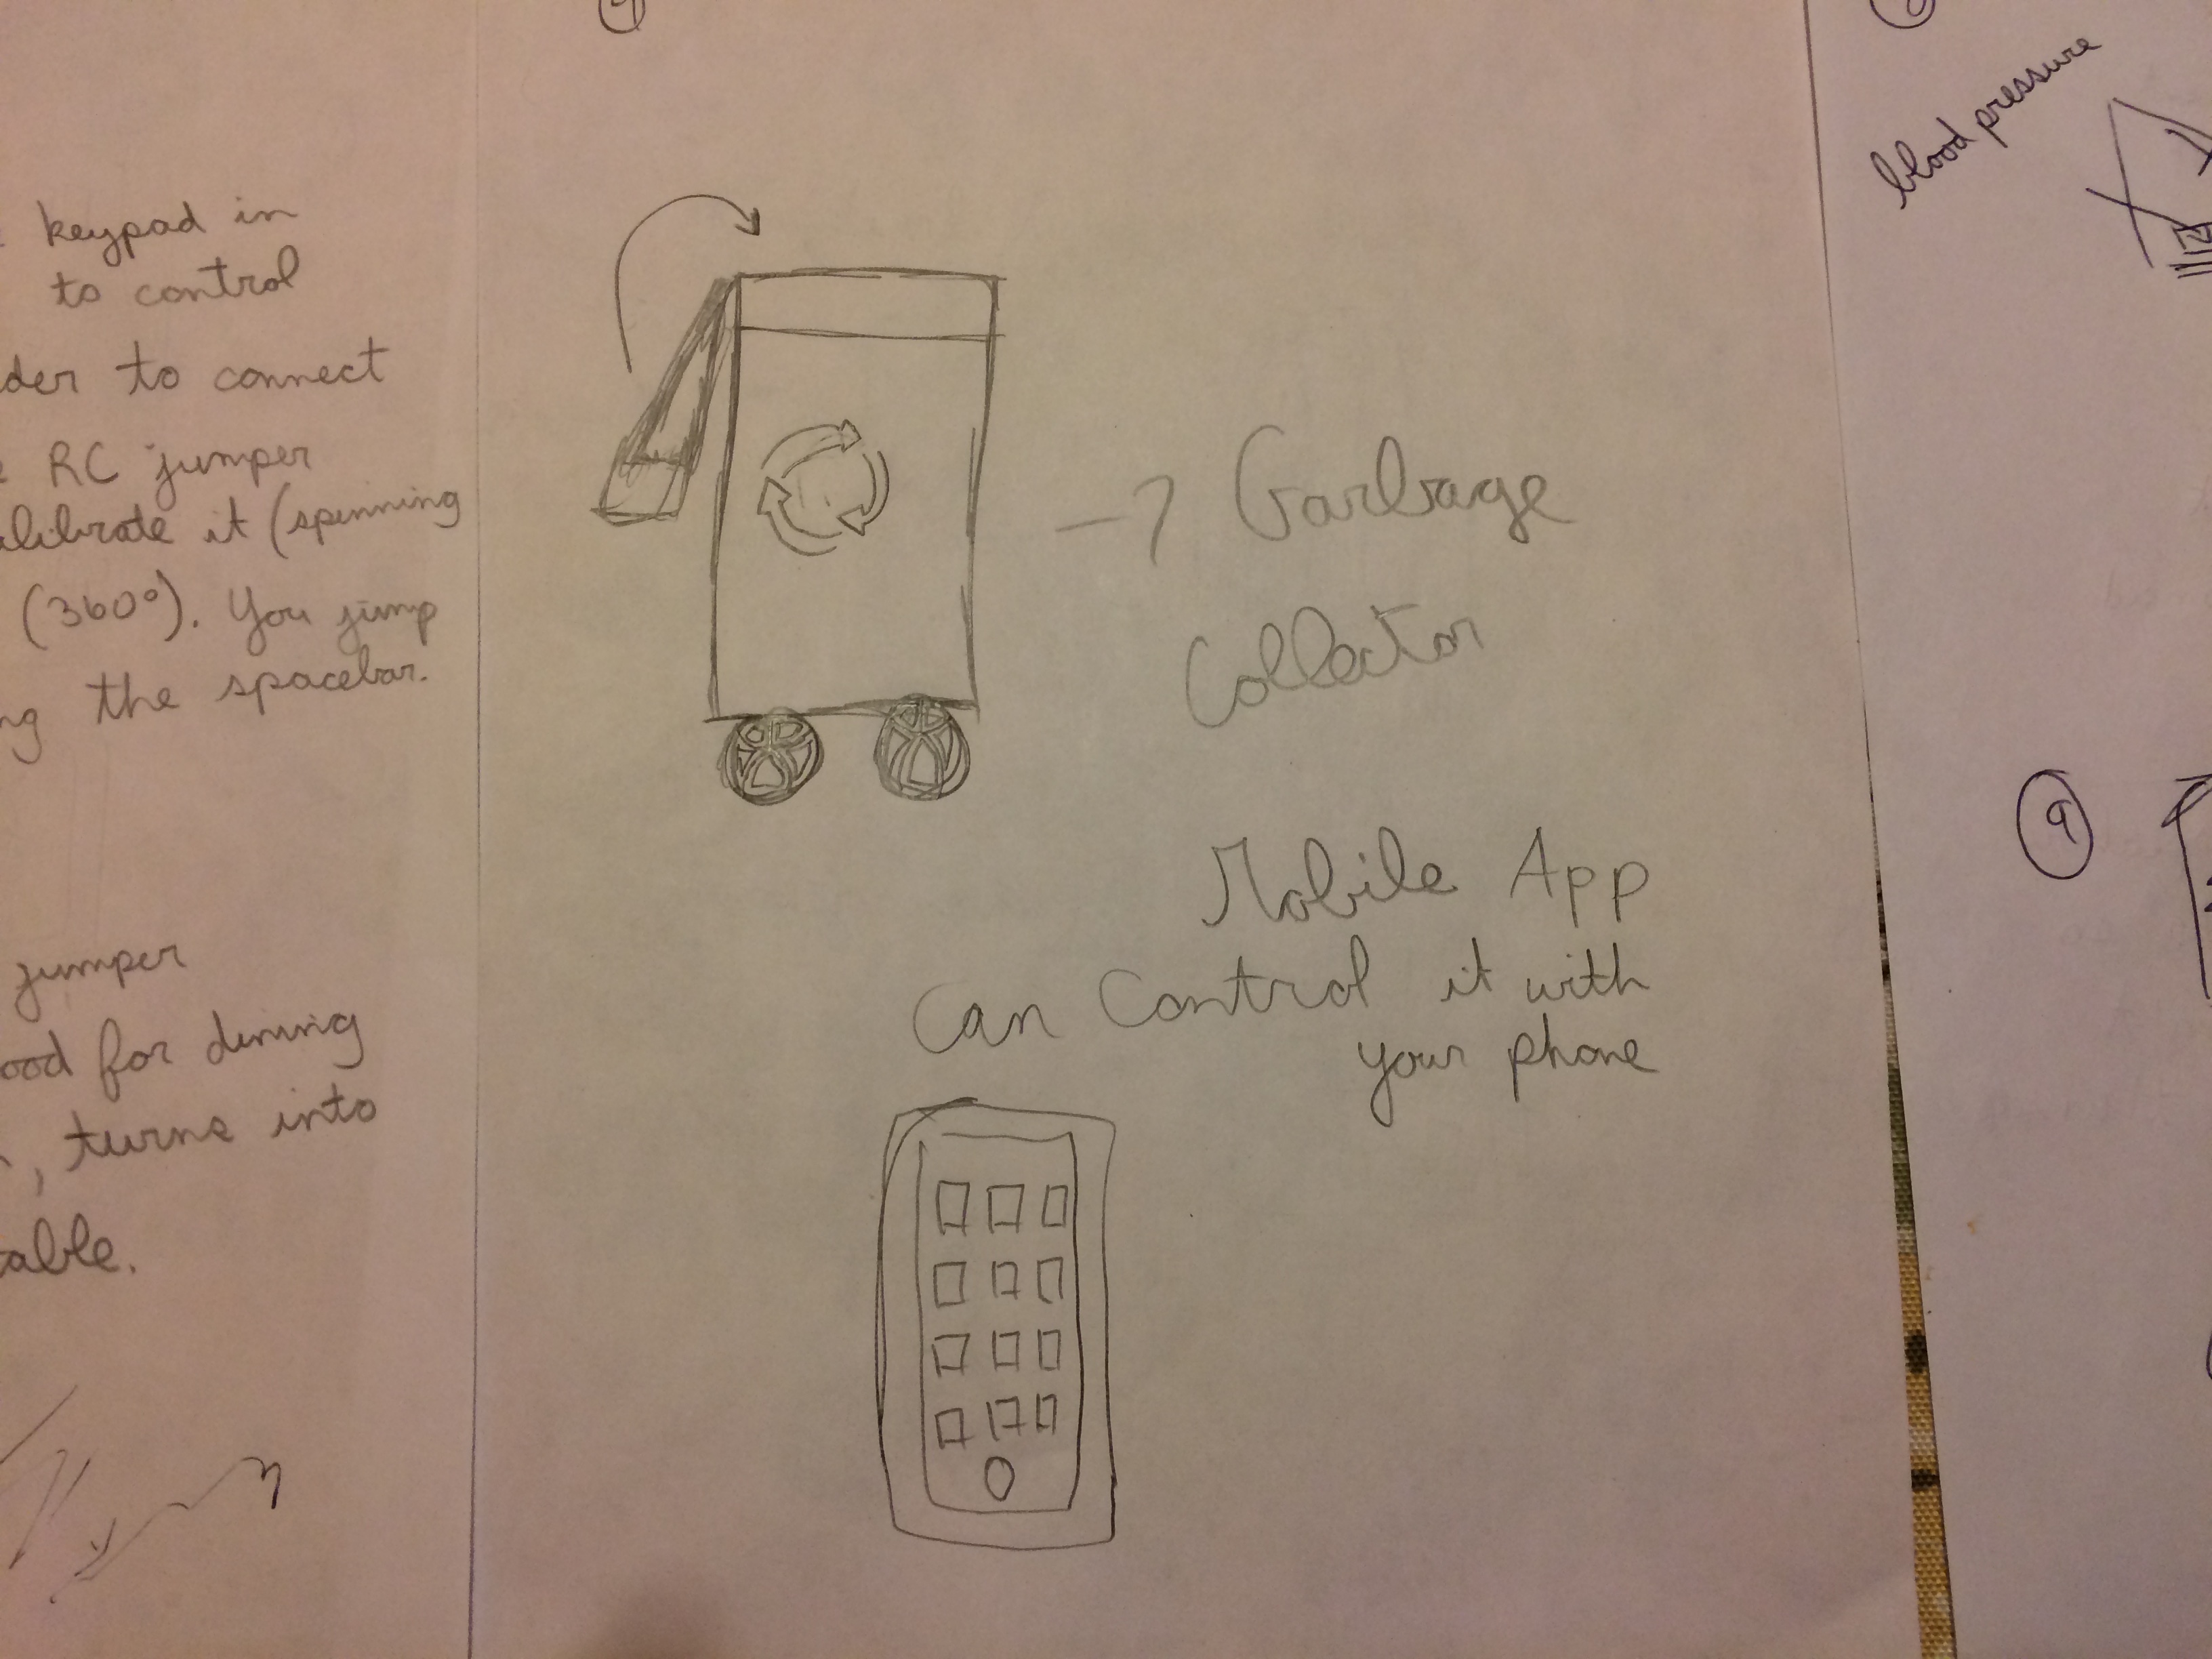 keypad in
to control
to connect
RC jumper
it (spinning
(360°). You jump
the spacebar.
jumper
for dining
, turns into
table.
→ Garbage
Collector
Mobile App
Can Control it with
your phone
blood pressure
9